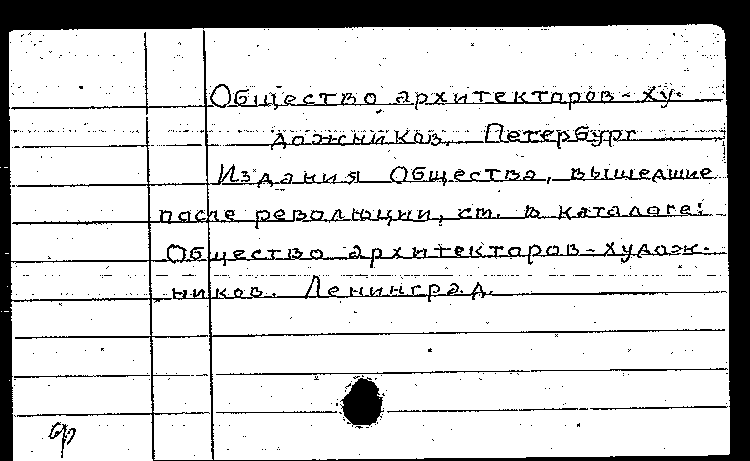 Общество архитекторов-ху-
дожников. Петербург
Издания Общества, вышедшие
после революции, см. в каталоге:
Общество архитекторов-худож-
ников. Ленинград.